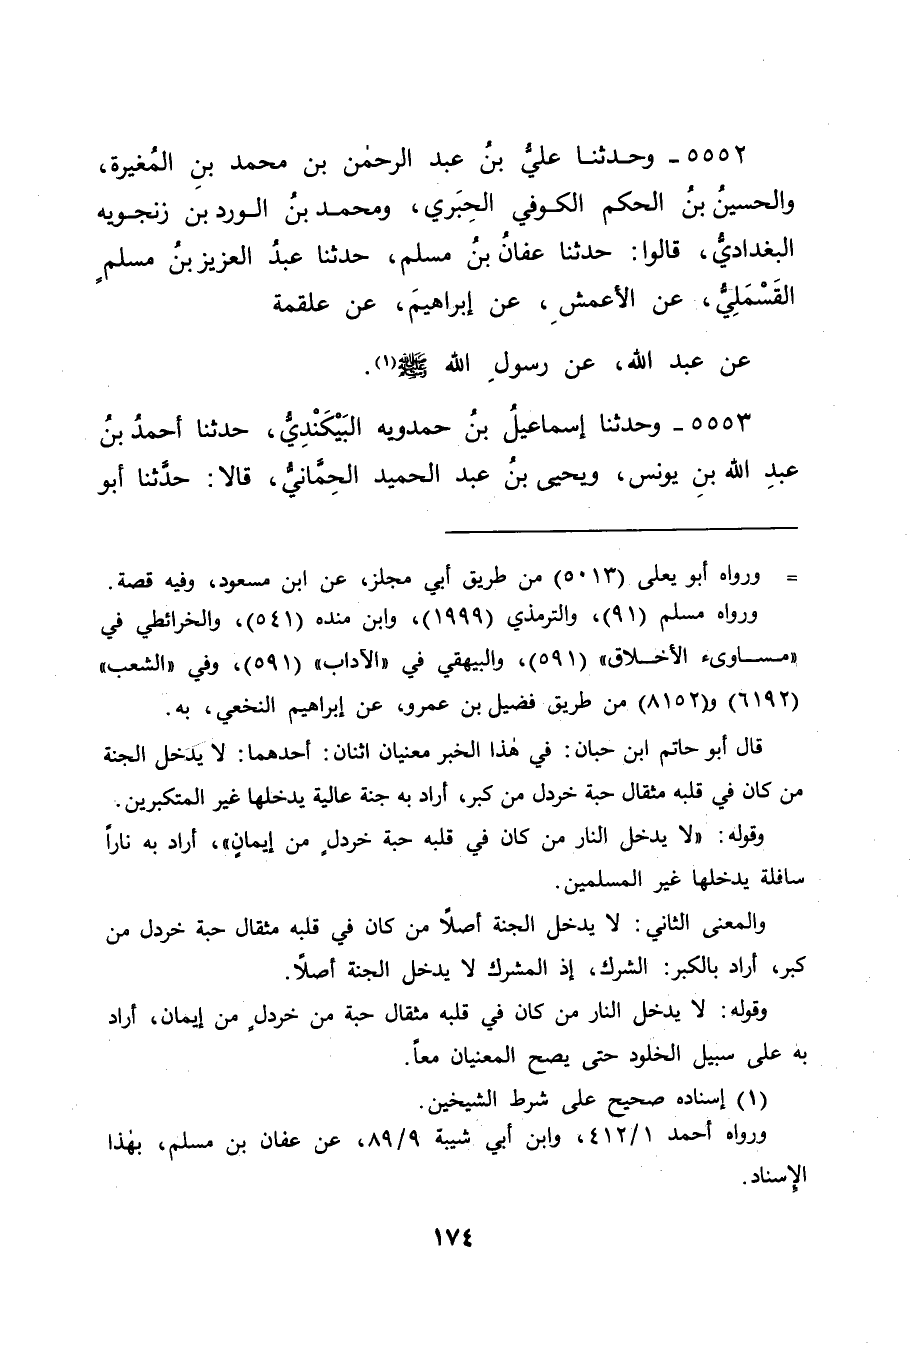 ٥٥٥٢ ـ وحـدثنـا عليُّ بنُ عبد الرحمٰن بن محمد بنِ المُغيرة،
والحسينُ بنُ الحكم الكـوفي الحِبَري، ومحمـد بنُ الـورد بن زنجـويه
البغداديُّ، قالوا: حدثنا عفانُ بنُ مسلم، حدثنا عبدُ العزيز بنُ مسلمٍ
القَسْمَلِيُّ، عن الأعمشِ، عن إبراهيمَ، عن علقمة
عن عبد الله، عن رسولِ الله ﷺ(١).
٥٥٥٣ ـ وحدثنا إسماعيلُ بنُ حمدويه البَيْكَنْدِيُّ، حدثنا أحمدُ بنُ
عبدِ الله بنِ يونس، ويحيى بنُ عبد الحميد الحِمَّانيُّ، قالا: حدَّثنا أبو
= ورواه أبو يعلى (٥٠١٣) من طريق أبي مجلز، عن ابن مسعود، وفيه قصة.
ورواه مسلم (٩١)، والترمذي (١٩٩٩)، وابن منده (٥٤١)، والخرائطي في
«مـسـاوىء الأخـلاق» (٥٩١)، والبيهقي في «الآداب» (٥٩١)، وفي «الشعب»
(٦١٩٢) و(٨١٥٢) من طريق فضيل بن عمرو، عن إبراهيم النخعي، به.
قال أبو حاتم ابن حبان: في هٰذا الخبر معنيان اثنان: أحدهما: لا يدخل الجنة
من كان في قلبه مثقال حبة خردل من كبر، أراد به جنة عالية يدخلها غير المتكبرين.
وقوله: «لا يدخل النار من كان في قلبه حبة خردلٍ من إيمانٍ»، أراد به ناراً
سافلة يدخلها غير المسلمين.
والمعنى الثاني: لا يدخل الجنة أصلاً من كان في قلبه مثقال حبة خردل من
كبر، أراد بالكبر: الشرك، إذ المشرك لا يدخل الجنة أصلاً.
وقوله: لا يدخل النار من كان في قلبه مثقال حبة من خردلٍ من إيمان، أراد
به على سبيل الخلود حتى يصح المعنيان معاً.
(١) إسناده صحيح على شرط الشيخين.
ورواه أحمد ٤١٢/١، وابن أبي شيبة ٨٩/٩، عن عفان بن مسلم، بهٰذا
الإسناد.
١٧٤